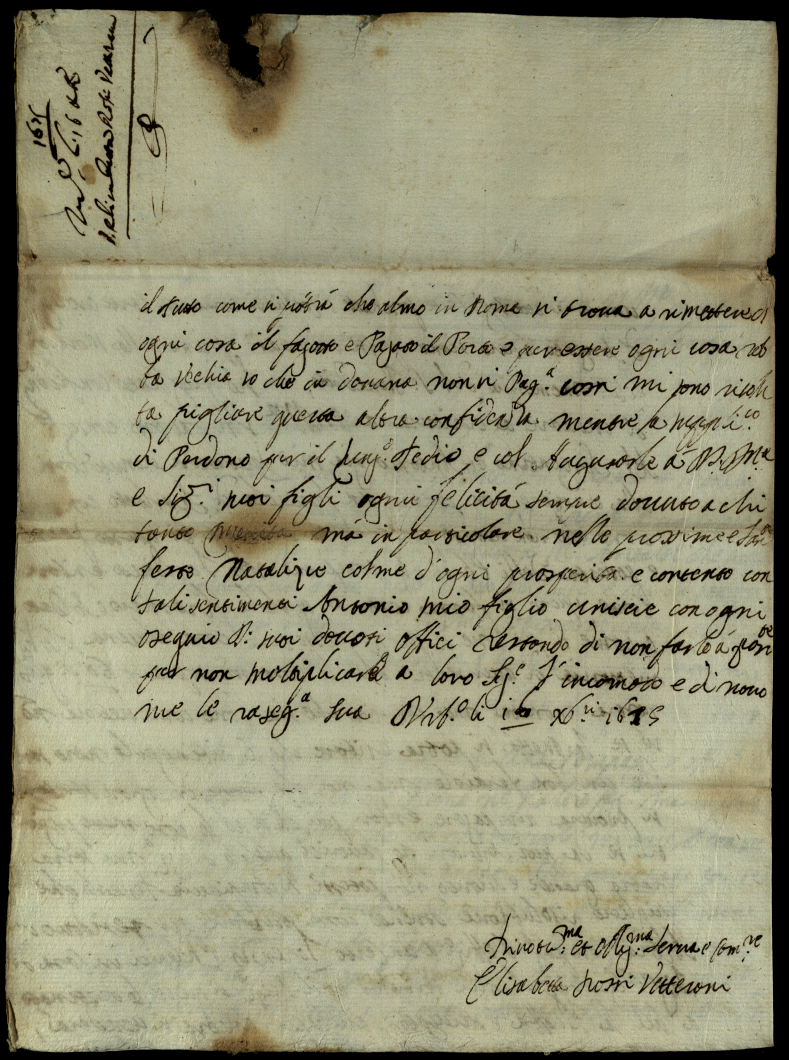 1675
il tutto come si potrà che almo in Roma si trova a rimettere di
ogni cosa il fagotto e Pagato il Porto e per essere ogni cosa rob
ba vechia so che in dovana non si Pag.ª cossì mi sono risolu
ta pigliare questa altra confidenza mentre a suppl.co
di Perdono per il lung.o tedio e col Augurarle á
e Sig.ri suoi figli ogni felicitá sempre dovuto a chi
tanto merita má in particolare nelle prossime e San.te
feste Natalizie colme d'ogni prosperita e contento con
tali sentimenti Antonio mio figlio uniscie con ogni
osequio i suoi devoti offici restando di non farlo á
per non moltiplicare a loro Sig.e l'incomodo e di novo
me le raseg.ª sua Urb.o li 16 Xb.ri 1675
Divotis.ma et Obg.ma Serva e Com.re
Elisabetta Veterani